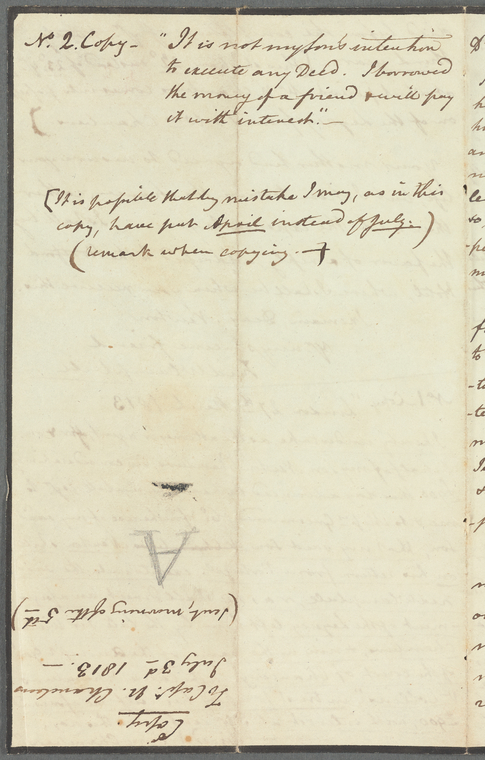 No. 2. Copy - "It is not my son's intention
to execute any Deed. I borrowed
the money of a friend & will pay
it with interest." -
[It is possible that by mistake I may, as in this
copy, have put April instead of July. -)
(remark when copying. - +
A
Copy
To Capt. N. Chamelions
July 3d 1813. -
(sent, morning of the 5th -)